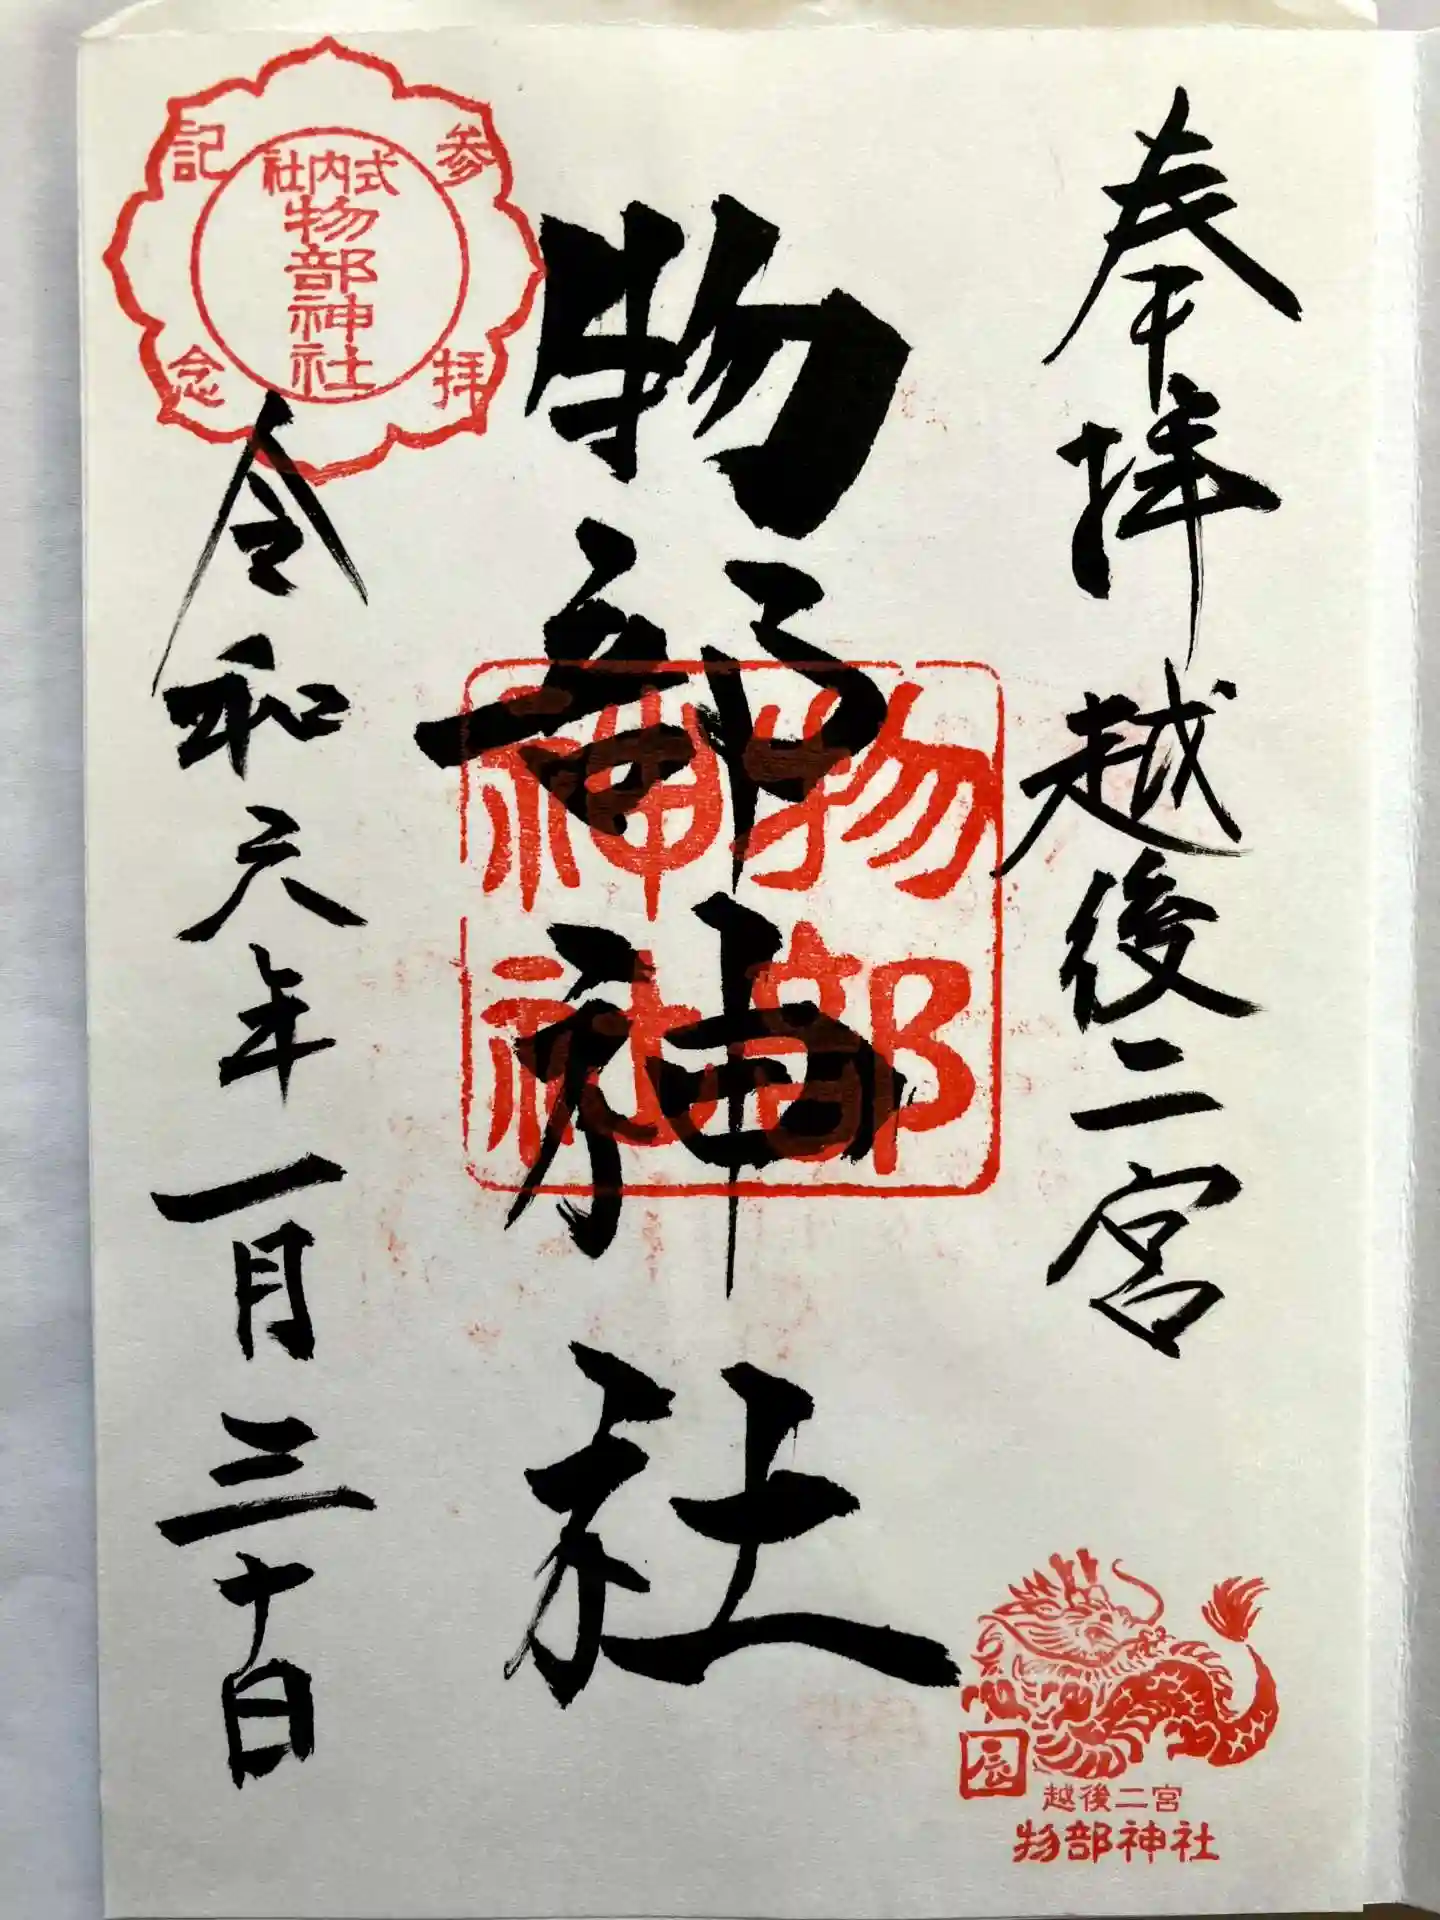 奉拝 越後二宮
物部神社
令和六年一月三十日
参拝記念
式内社
物部神社
物部
神社
辰
越後二宮
物部神社